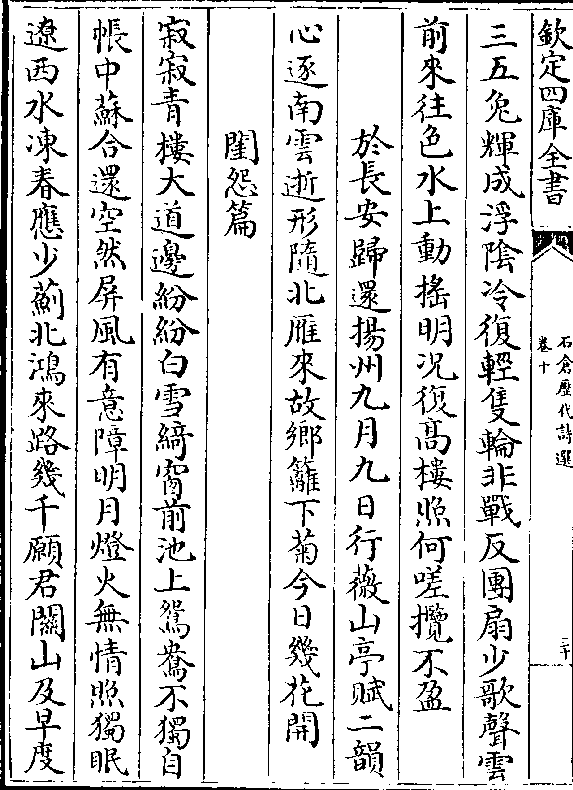 欽定四庫全書
石倉歷代詩選
卷十
二十
三五兔輝成浮陰冷復輕隻輪非戰反團扇少歌聲雲
前來往色水上動搖明况復髙樓照何嗟攬不盈
於長安歸還揚州九月九日行薇山亭賦二韻
心逐南雲逝形隨北雁來故鄉籬下菊今日幾花開
閨怨篇
寂寂青樓大道邊紛紛白雪綺窗前池上鴛鴦不獨自
帳中蘇合還空然屏風有意障明月燈火無情照獨眠
遼西水凍春應少薊北鴻來路幾千願君關山及早度